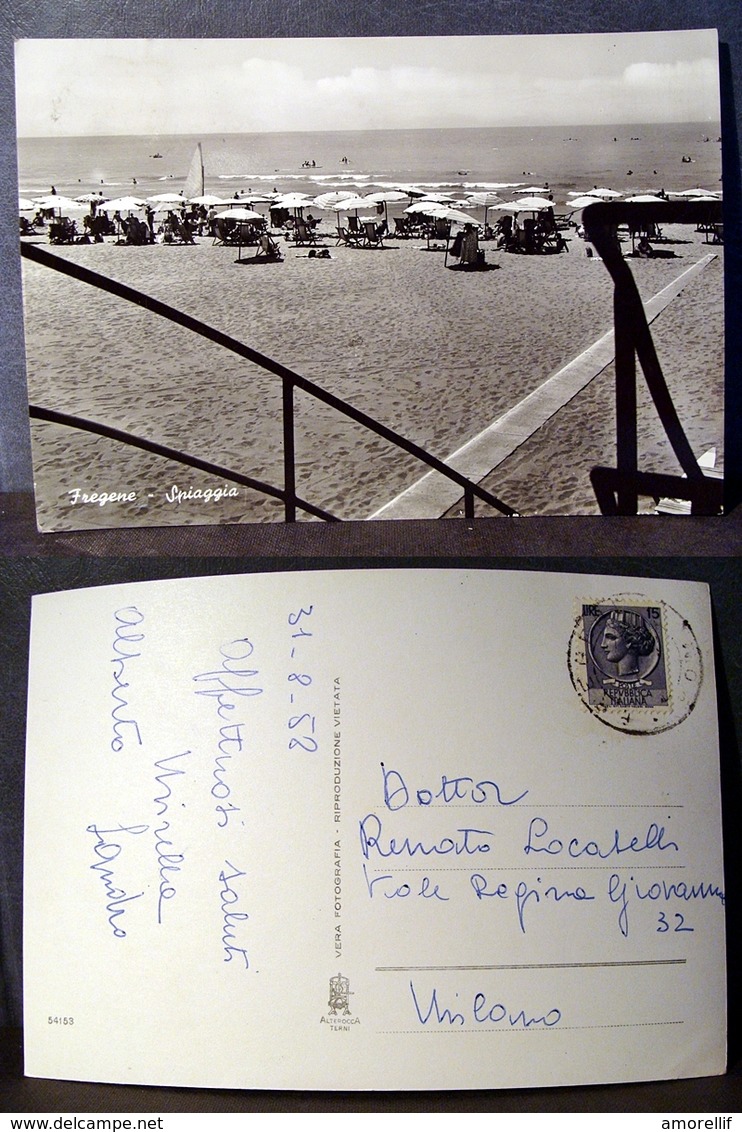 Fregene - Spiaggia
31-8-58
Affettuosi saluti
Mirella
Alberto
Sandro
VERA FOTOGRAFIA - RIPRODUZIONE VIETATA
54153
ALTEROCCA
TERNI
LIRE 15
POSTE
REPVBBLICA
ITALIANA
Dottor
Renato Locatelli
Viale Regina Giovanna
32
Milano
amorellif
www.delcampe.net